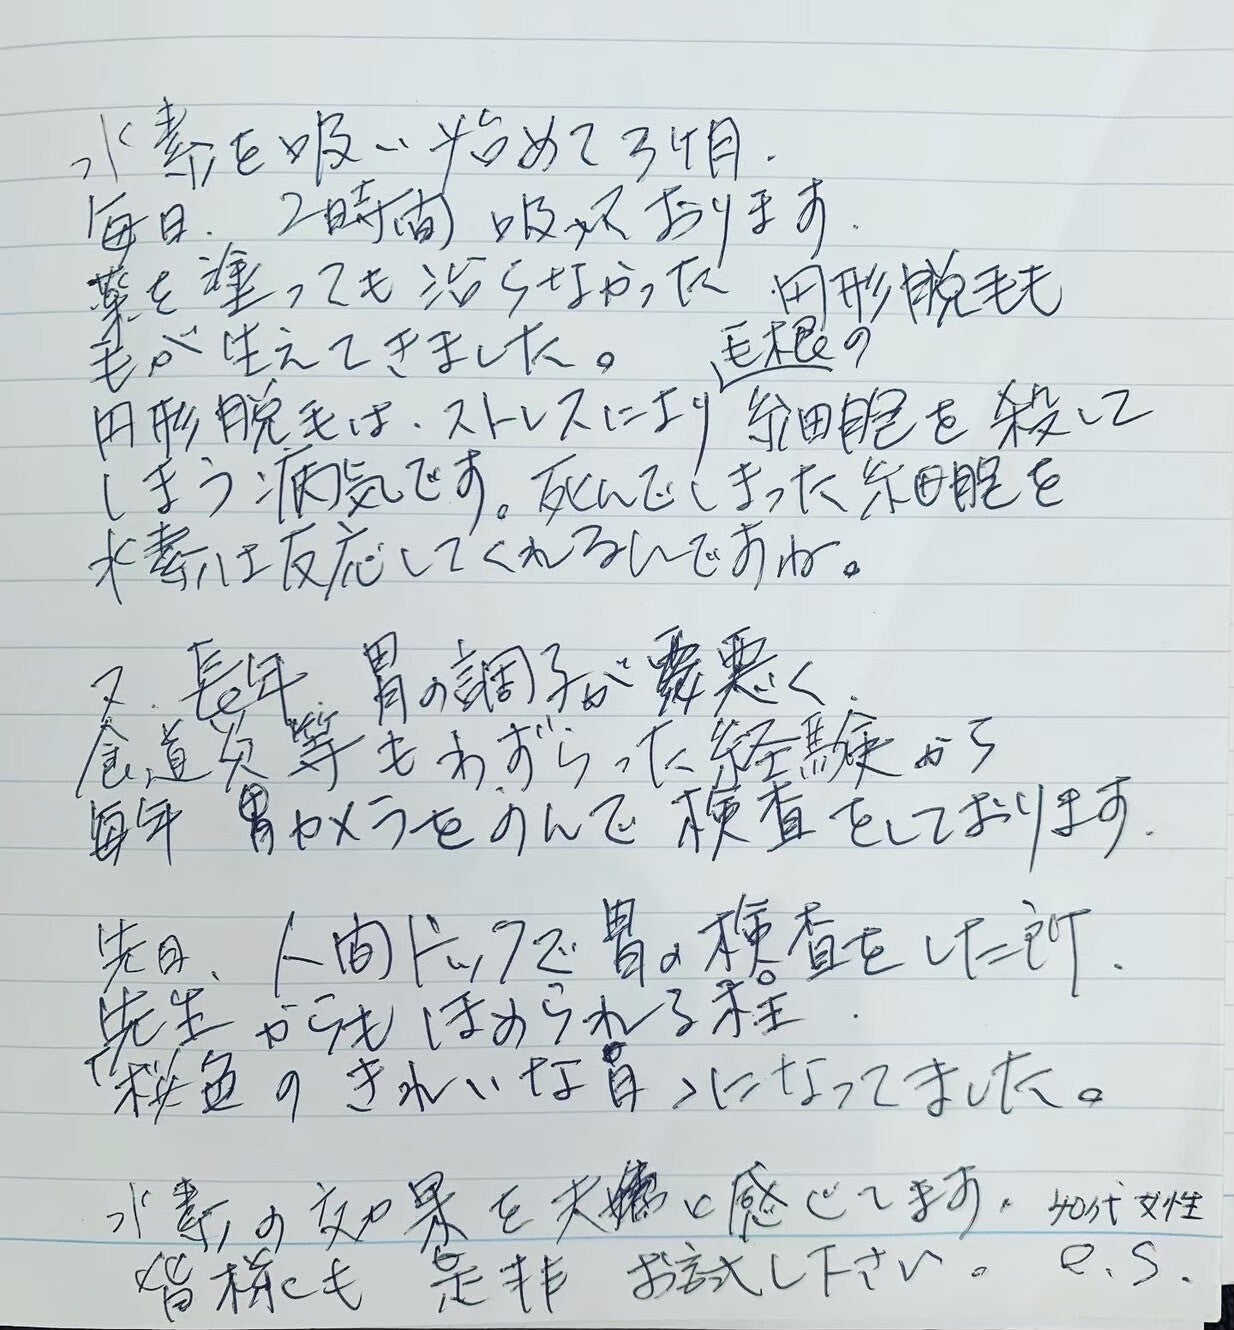 水素を吸い始めて3ヶ月.
毎日. 2時間 吸っております.
薬を塗っても治らなかった 円形脱毛も
毛が生えてきました。 毛根の
円形脱毛は、ストレスにより細胞を殺して
しまう病気です。死んでしまった細胞を
水素は反応してくれるんですね。
又、長年 胃の調子が悪く、
食道炎等もわずらった経験から
毎年 胃カメラをのんで検査をしております.
先日、人間ドックで胃の検査をした所.
先生からもほめられる程.
「桜色のきれいな胃」になってました。
水素の効果を大に感じてます. 40代 女性
皆様にも 是非 お試し下さい。 e.S.